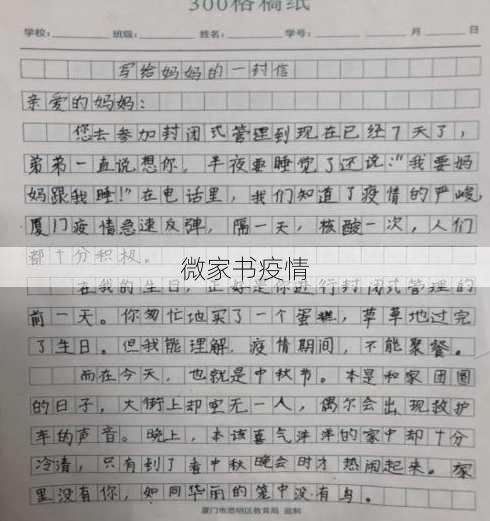 300格稿纸
学校: 班级: 姓名: 学号: 月 日
写给妈妈的一封信
亲爱的妈妈:
您去参加封闭式管理到现在已经7天了,
弟弟一直说想你,半夜要睡觉了还说:"我要妈
妈跟我睡!"在电话里,我们知道了疫情的严峻,
厦门疫情急速反弹,隔一天,核酸一次,人们
都十分积极。
微家书疫情
在我的生日,正好是你进行封闭式管理的
前一天。你匆忙地买了一个蛋糕,草草地过完
了生日。但我能理解,疫情期间,不能聚餐。
而在今天,也就是中秋节。本是和家团圆
的日子,大街上却空无一人,偶尔会出现救护
车的声音。晚上,本该喜气洋洋的家中却十分
冷清,只有到了看中秋晚会时才热闹起来。家
里没有你,如同华丽的笼中没有鸟。
厦门市思明区教育局 监制